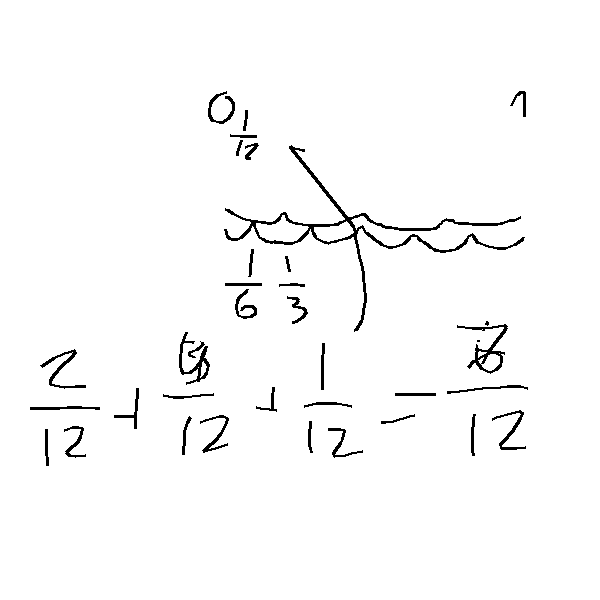 0 1/12 1
1/6 1/3
2/12 + /12 + 1/12 = /12